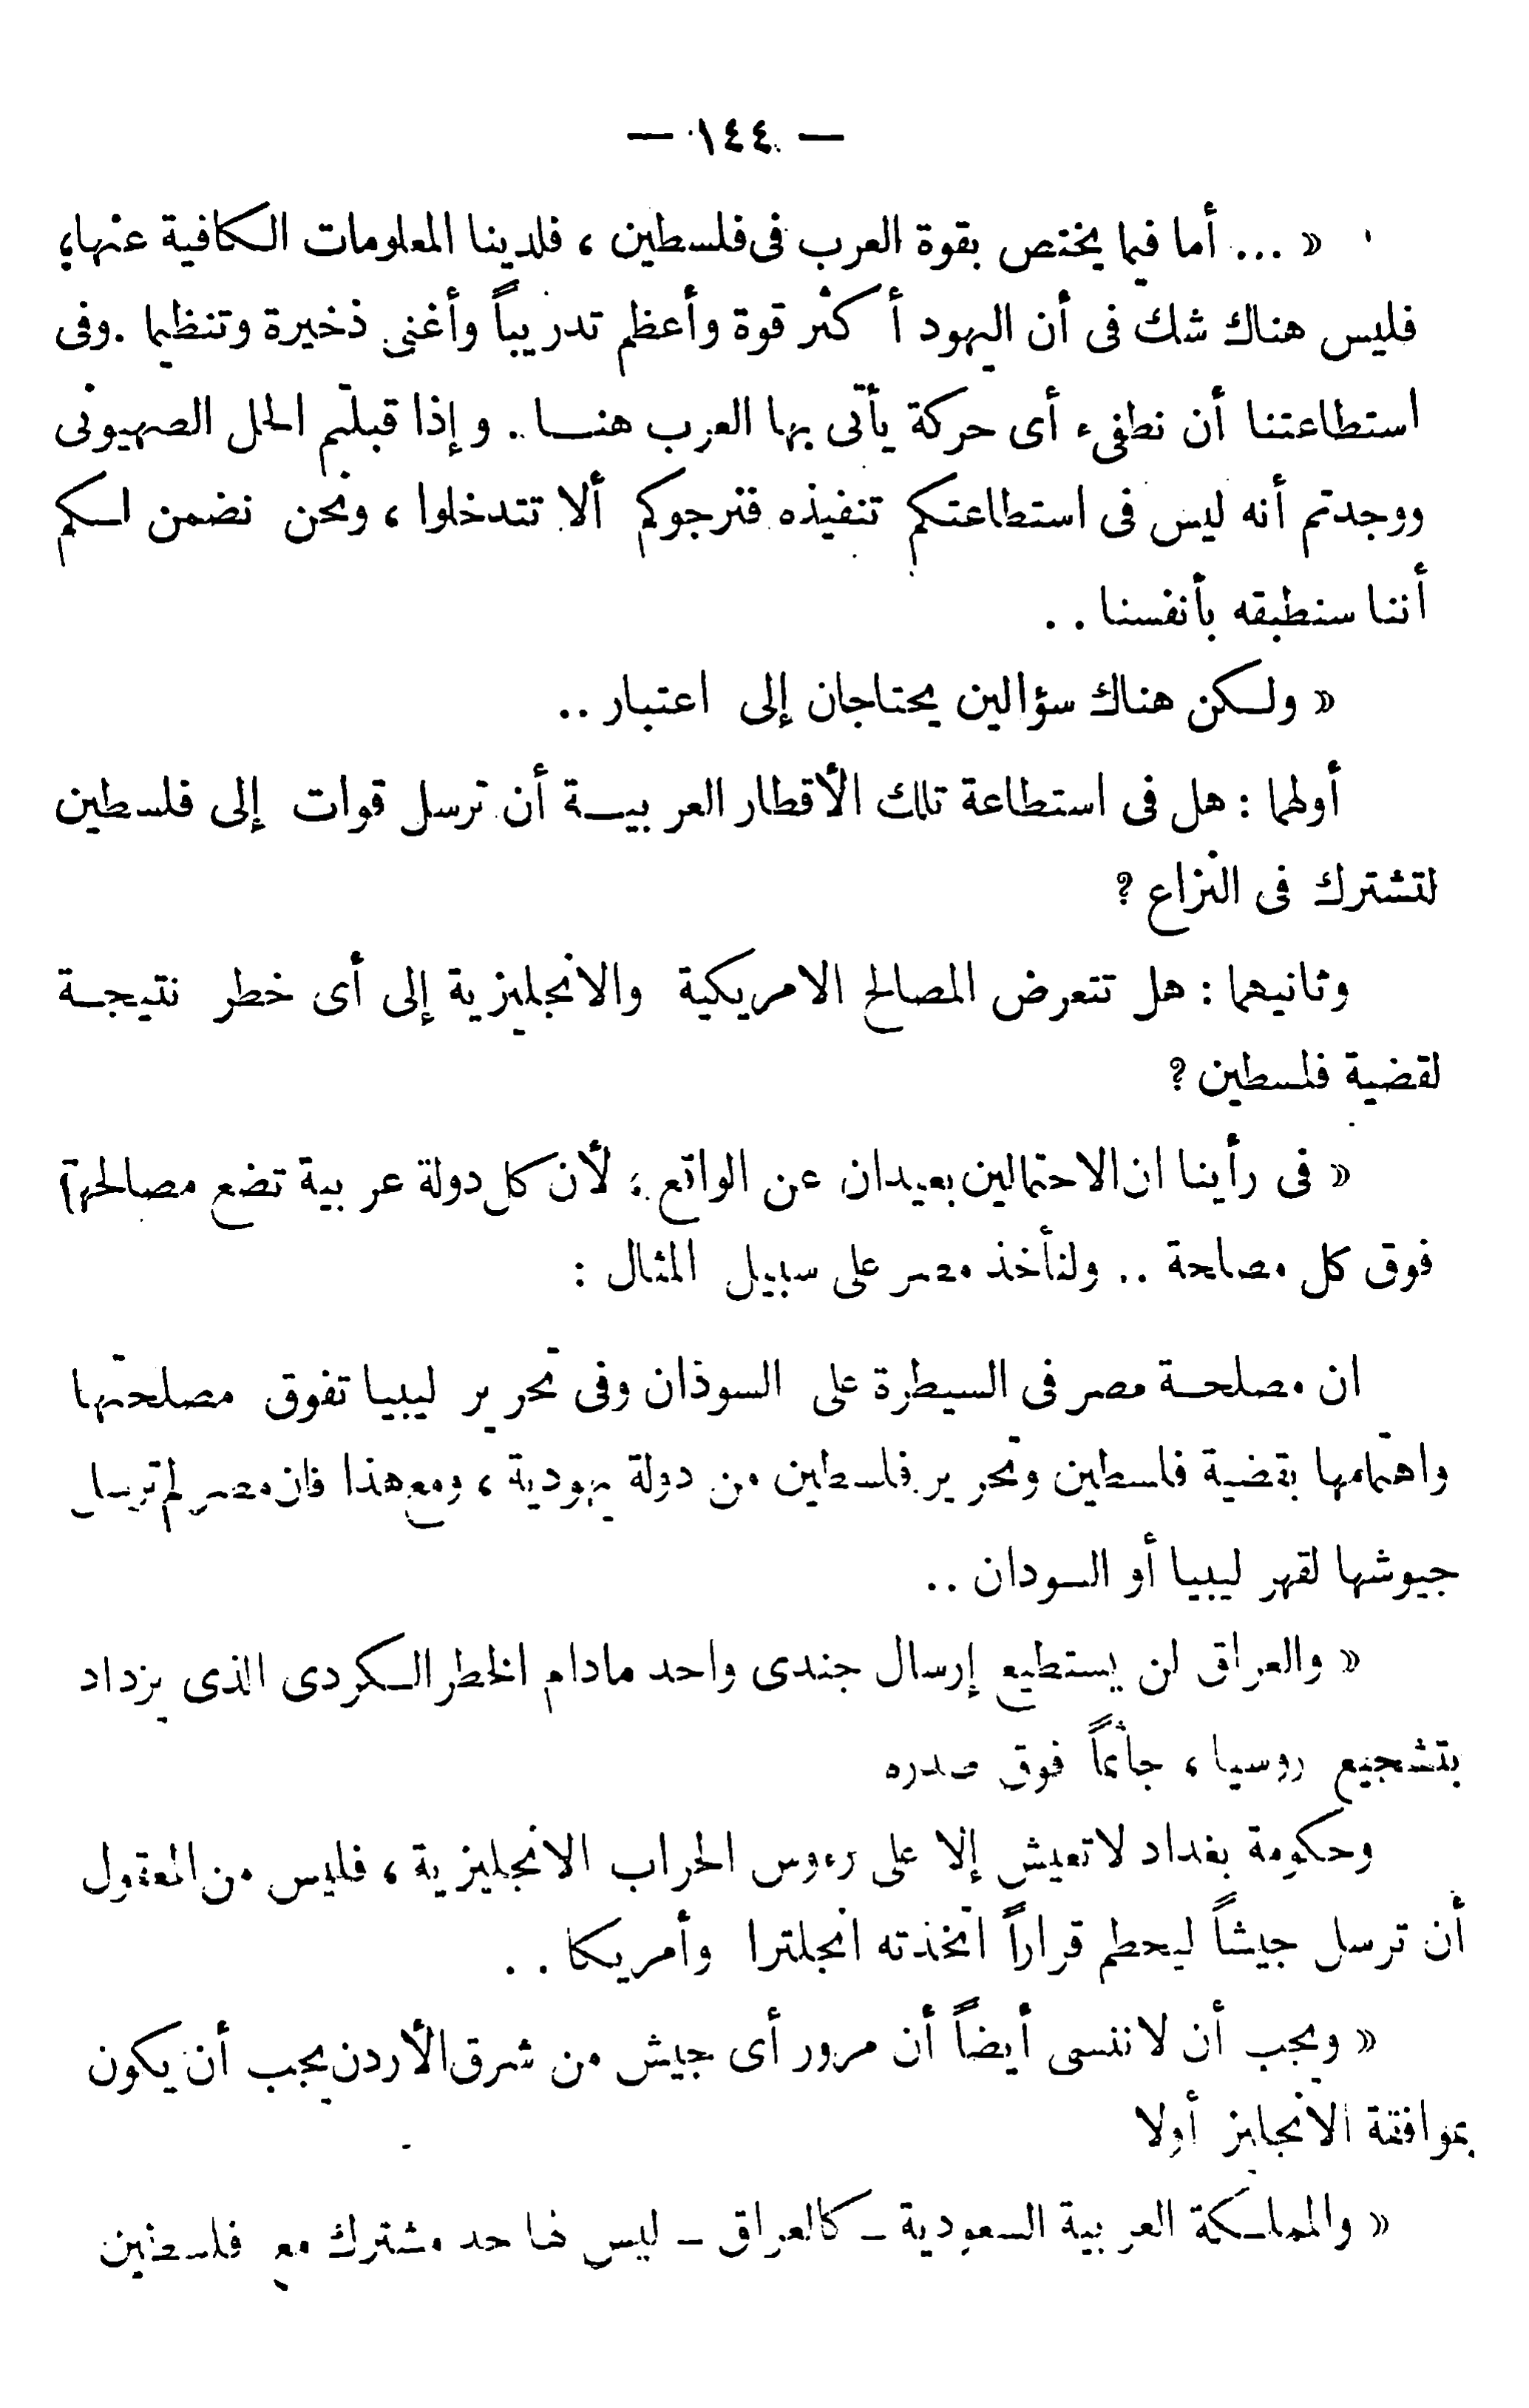 — ١٤٤ —
« ... أما فيما يختص بقوة العرب فى فلسطين ، فلدينا المعلومات الكافية عنها ؛
فليس هناك شك فى أن اليهود أكثر قوة وأعظم تدريباً وأغنى ذخيرة وتنظيما . وفى
استطاعتنا أن نطفىء أى حركة يأتى بها العرب هنا .. وإذا قبلتم الحل الصهيونى
ووجدتم أنه ليس فى استطاعتكم تنفيذه فنرجوكم ألا تتدخلوا ، ونحن نضمن لكم
أننا سنطبقه بأنفسنا ..
« ولكن هناك سؤالين يحتاجان إلى اعتبار ..
أولهما : هل فى استطاعة تلك الأقطار العربية أن ترسل قوات إلى فلسطين
لتشترك فى النزاع ؟
وثانيهما : هل تتعرض المصالح الامريكية والانجليزية إلى أى خطر نتيجة
لقضية فلسطين ؟
« فى رأينا ان الاحتمالين بعيدان عن الواقع ؛ لأن كل دولة عربية تضع مصالحها
فوق كل مصلحة .. ولنأخذ مصر على سبيل المثال :
ان مصلحة مصر فى السيطرة على السوذان وفى تحرير ليبيا تفوق مصلحتها
واهتمامها بقضية فلسطين وتحرير فلسطين من دولة يهودية ، ومع هذا فان مصر لم ترسل
جيوشها لقهر ليبيا أو السودان ..
« والعراق لن يستطيع إرسال جندى واحد مادام الخطر الكردى الذى يزداد
بتشجيع روسيا ، جاثماً فوق صدره
وحكومة بغداد لاتعيش إلا على رءوس الحراب الانجليزية ، فليس من المعقول
أن ترسل جيشاً ليحطم قراراً اتخذته انجلترا وأمريكا ..
« ويجب أن لاننسى أيضاً أن مرور أى جيش من شرق الأردن يجب أن يكون
بموافقة الانجليز أولا
« والمملكة العربية السعودية ــ كالعراق ــ ليس لها حد مشترك مع فلسطين